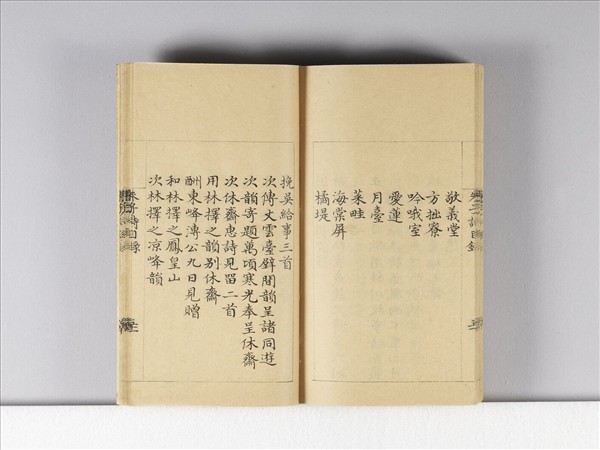 敬義堂
方拙寮
吟哦室
愛蓮
月臺
菜畦
海棠屏
橘堤
挽吳給事三首
次傅丈雲臺壁間韻呈諸同遊
次韻寄題萬頃寒光奉呈休齋
次休齋惠詩見留二首
用林擇之韻別休齋
酬東峰溥公九日見贈
和林擇之鳳皇山
次林擇之凉峰韻